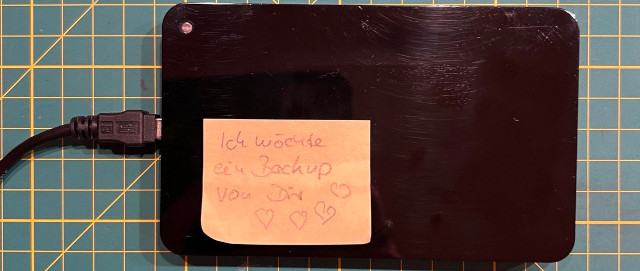 Ich möchte
ein Backup
von Dir ♡
♡ ♡ ♡